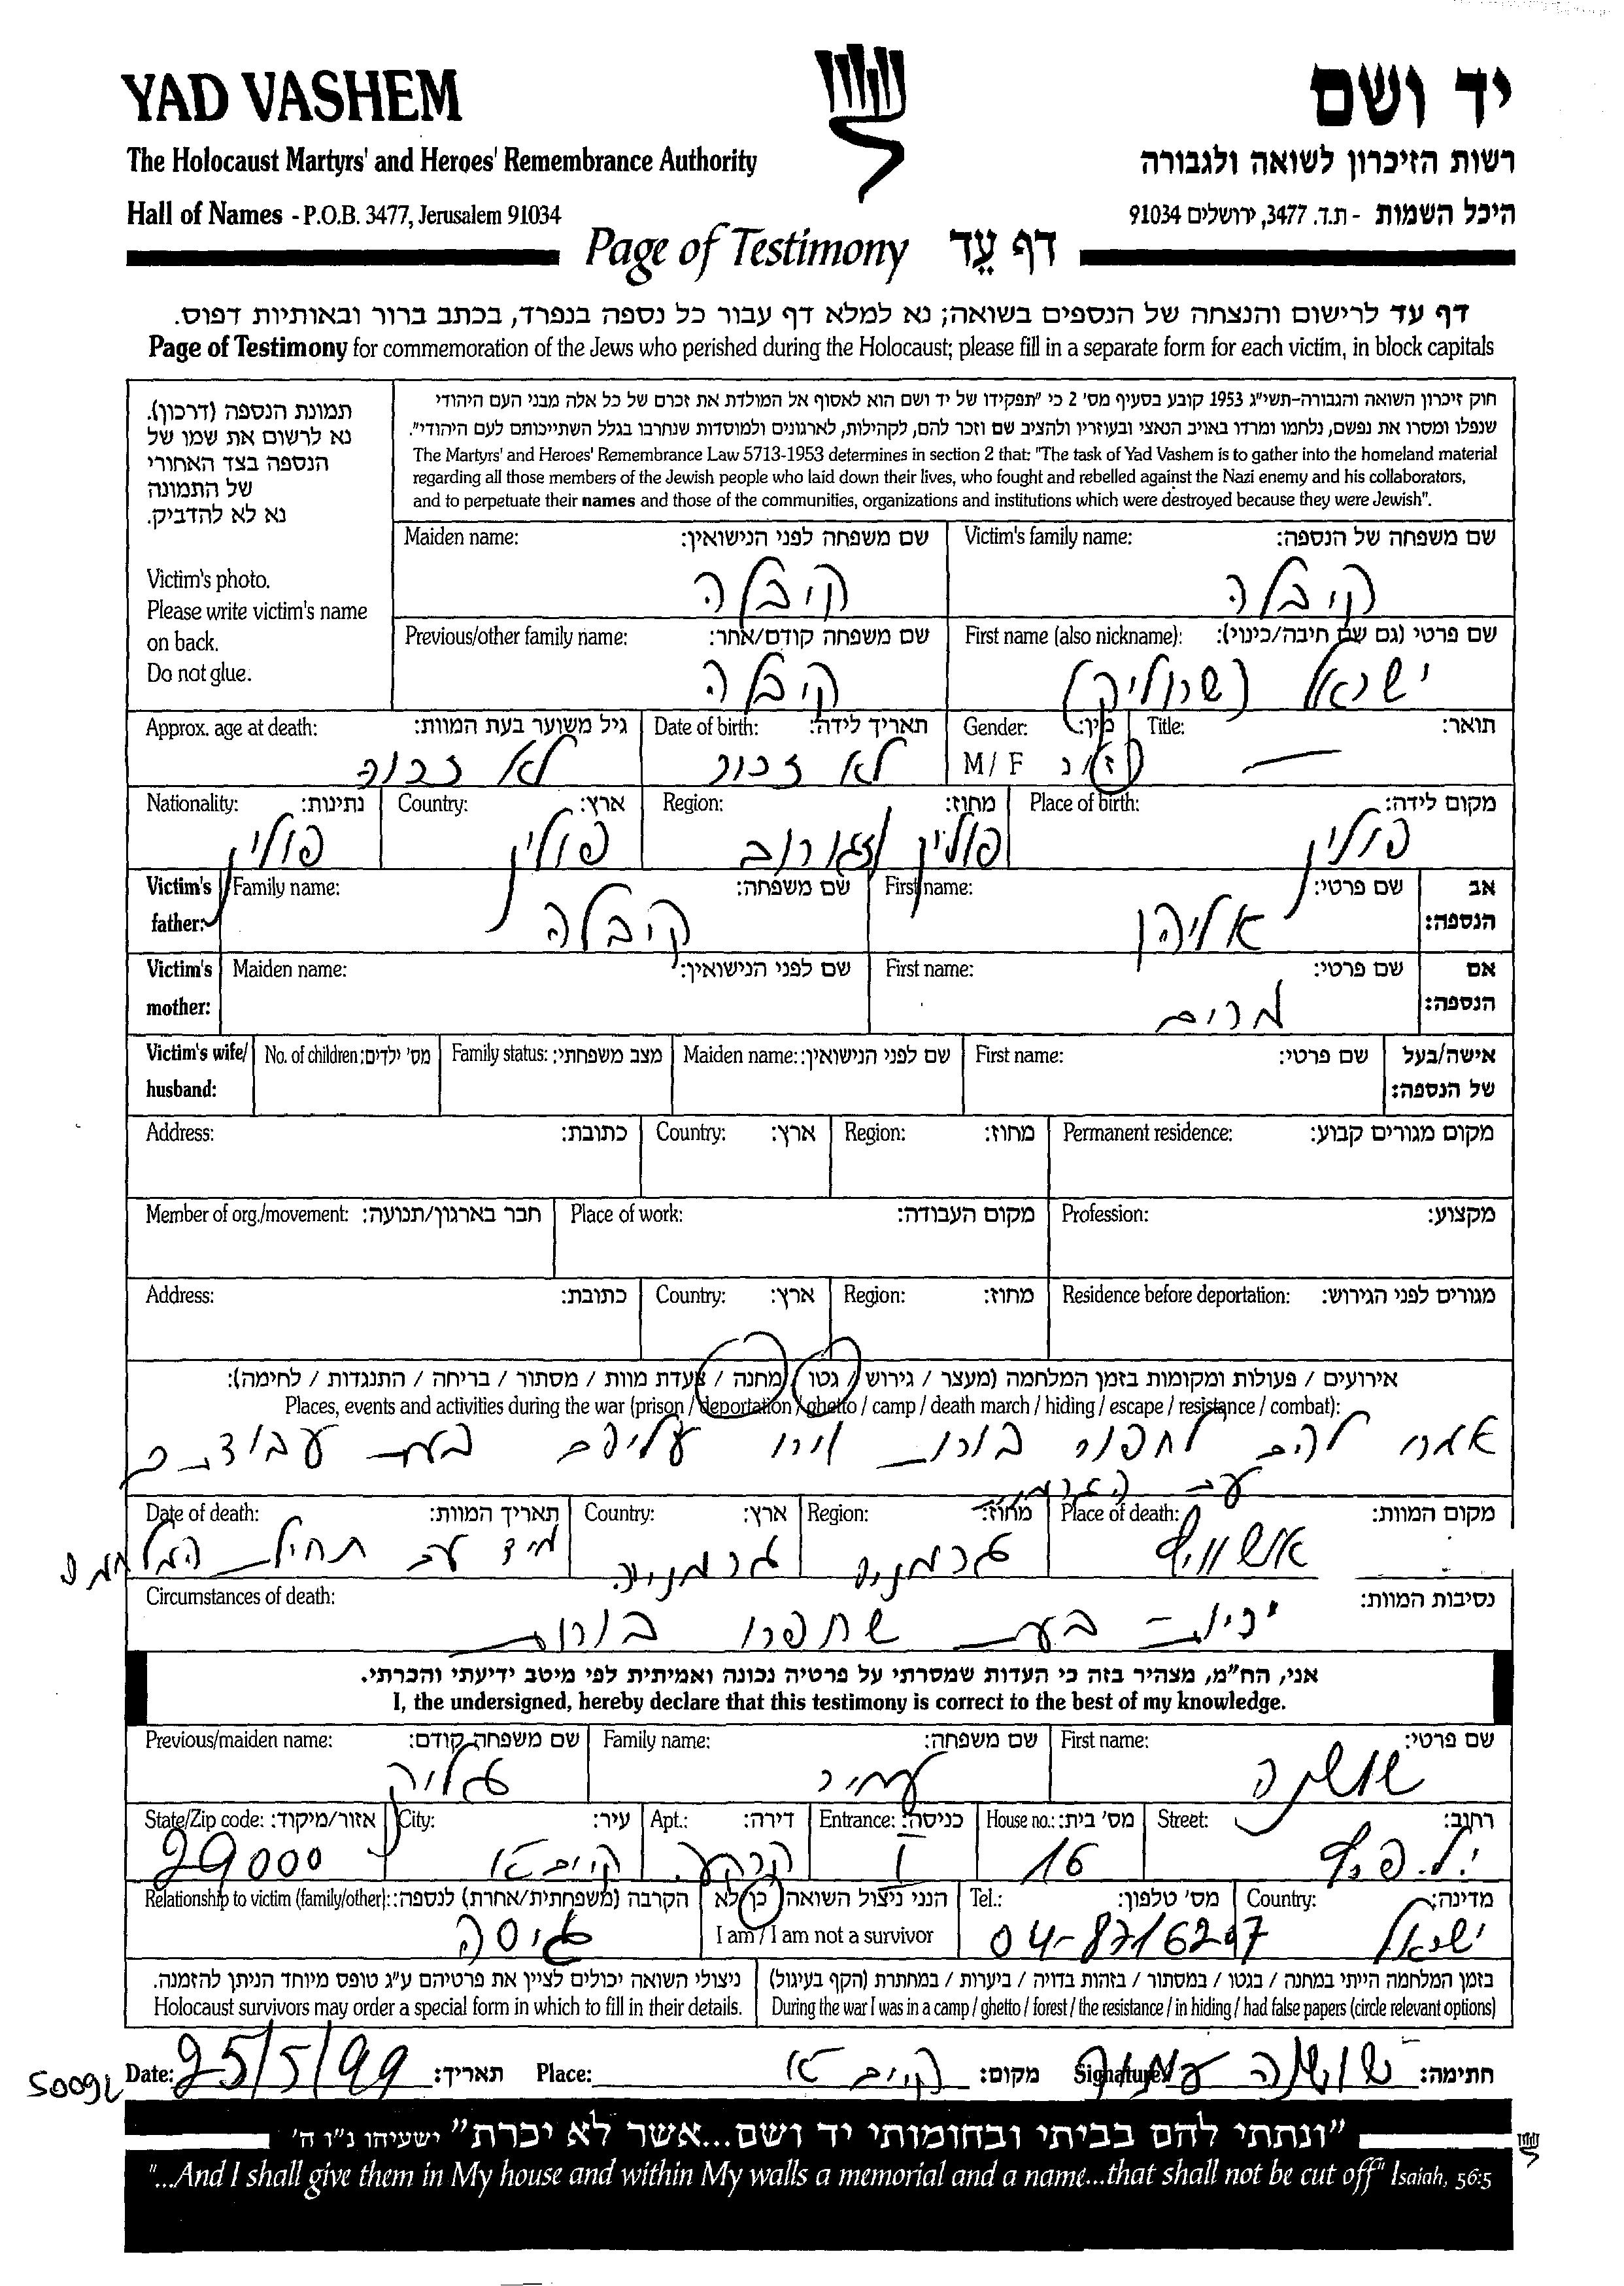 YAD VASHEM
יד ושם
The Holocaust Martyrs' and Heroes' Remembrance Authority
רשות הזיכרון לשואה ולגבורה
Hall of Names - P.O.B. 3477, Jerusalem 91034
היכל השמות - ת.ד. 3477, ירושלים 91034
Page of Testimony דף עֵד
דף עד לרישום והנצחה של הנספים בשואה; נא למלא דף עבור כל נספה בנפרד, בכתב ברור ובאותיות דפוס.
Page of Testimony for commemoration of the Jews who perished during the Holocaust; please fill in a separate form for each victim, in block capitals
תמונת הנספה (דרכון).
נא לרשום את שמו של
הנספה בצד האחורי
של התמונה
נא לא להדביק.
Victim's photo.
Please write victim's name
on back.
Do not glue.
חוק זיכרון השואה והגבורה-תשי"ג 1953 קובע בסעיף מס' 2 כי "תפקידו של יד ושם הוא לאסוף אל המולדת את זכרם של כל אלה מבני העם היהודי
שנפלו ומסרו את נפשם, נלחמו ומרדו באויב הנאצי ובעוזריו ולהציב שם וזכר להם, לקהילות, לארגונים ולמוסדות שנחרבו בגלל השתייכותם לעם היהודי".
The Martyrs' and Heroes' Remembrance Law 5713-1953 determines in section 2 that: "The task of Yad Vashem is to gather into the homeland material
regarding all those members of the Jewish people who laid down their lives, who fought and rebelled against the Nazi enemy and his collaborators,
and to perpetuate their names and those of the communities, organizations and institutions which were destroyed because they were Jewish".
Victim's family name: שם משפחה של הנספה:
קיבלה
Maiden name: שם משפחה לפני הנישואין:
קיבלה
First name (also nickname): שם פרטי (גם שם חיבה/כינוי):
ישראל (שרוליק)
Previous/other family name: שם משפחה קודם/אחר:
קיבלה
Title: תואר:
—
Gender: מין:
M / F ז / נ
Date of birth: תאריך לידה:
לא זכור
Approx. age at death: גיל משוער בעת המוות:
לא זכור
Place of birth: מקום לידה:
פולין
Region: מחוז:
פולין
Country: ארץ:
פולין
Nationality: נתינות:
פולין
Victim's father: אב הנספה:
First name: שם פרטי:
אליהו
Family name: שם משפחה:
קיבלה
Victim's mother: אם הנספה:
First name: שם פרטי:
מרים
Maiden name: שם לפני הנישואין:
Victim's wife/ husband: אישה/בעל של הנספה:
First name: שם פרטי:
Maiden name: שם לפני הנישואין:
Family status: מצב משפחתי:
No. of children: מס' ילדים:
Permanent residence: מקום מגורים קבוע:
Region: מחוז:
Country: ארץ:
Address: כתובת:
Profession: מקצוע:
Place of work: מקום העבודה:
Member of org./movement: חבר בארגון/תנועה:
Residence before deportation: מגורים לפני הגירוש:
Region: מחוז:
Country: ארץ:
Address: כתובת:
אירועים / פעולות ומקומות בזמן המלחמה (מעצר / גירוש / גטו / מחנה / צעדת מוות / מסתור / בריחה / התנגדות / לחימה):
Places, events and activities during the war (prison / deportation / ghetto / camp / death march / hiding / escape / resistance / combat):
אמרו להם לחפור בורות וירו עליהם בעת עבודתם
Place of death: מקום המוות:
אושוויץ
Region: מחוז:
גרמניה
Country: ארץ:
גרמניה
Date of death: תאריך המוות:
מיד עם תחילת המלחמה
Circumstances of death: נסיבות המוות:
יריות בעת שחפרו בורות
אני, הח"מ, מצהיר בזה כי העדות שמסרתי על פרטיה נכונה ואמיתית לפי מיטב ידיעתי והכרתי.
I, the undersigned, hereby declare that this testimony is correct to the best of my knowledge.
First name: שם פרטי:
שושנה
Family name: שם משפחה:
עמיר
Previous/maiden name: שם משפחה קודם:
Street: רחוב:
י.ל. פרץ
House no.: מס' בית:
16
Entrance: כניסה:
1
Apt.: דירה:
קרקע
City: עיר:
ק. ים
State/Zip code: אזור/מיקוד:
29000
Country: מדינה:
ישראל
Tel.: מס' טלפון:
04-8716297
הנני ניצול השואה כן / לא
I am / I am not a survivor
Relationship to victim (family/other): הקרבה (משפחתית/אחרת) לנספה:
גיסה
בזמן המלחמה הייתי במחנה / בגטו / במסתור / בזהות בדויה / ביערות / במחתרת (הקף בעיגול)
During the war I was in a camp / ghetto / forest / the resistance / in hiding / had false papers (circle relevant options)
ניצולי השואה יכולים לציין את פרטיהם ע"ג טופס מיוחד הניתן להזמנה.
Holocaust survivors may order a special form in which to fill in their details.
Date: 25/5/99 תאריך: Place: ק. ים מקום: Signature: שושנה עמיר חתימה:
"ונתתי להם בביתי ובחומותי יד ושם...אשר לא יכרת" ישעיהו נ"ו ה'
"...And I shall give them in My house and within My walls a memorial and a name...that shall not be cut off" Isaiah, 56:5